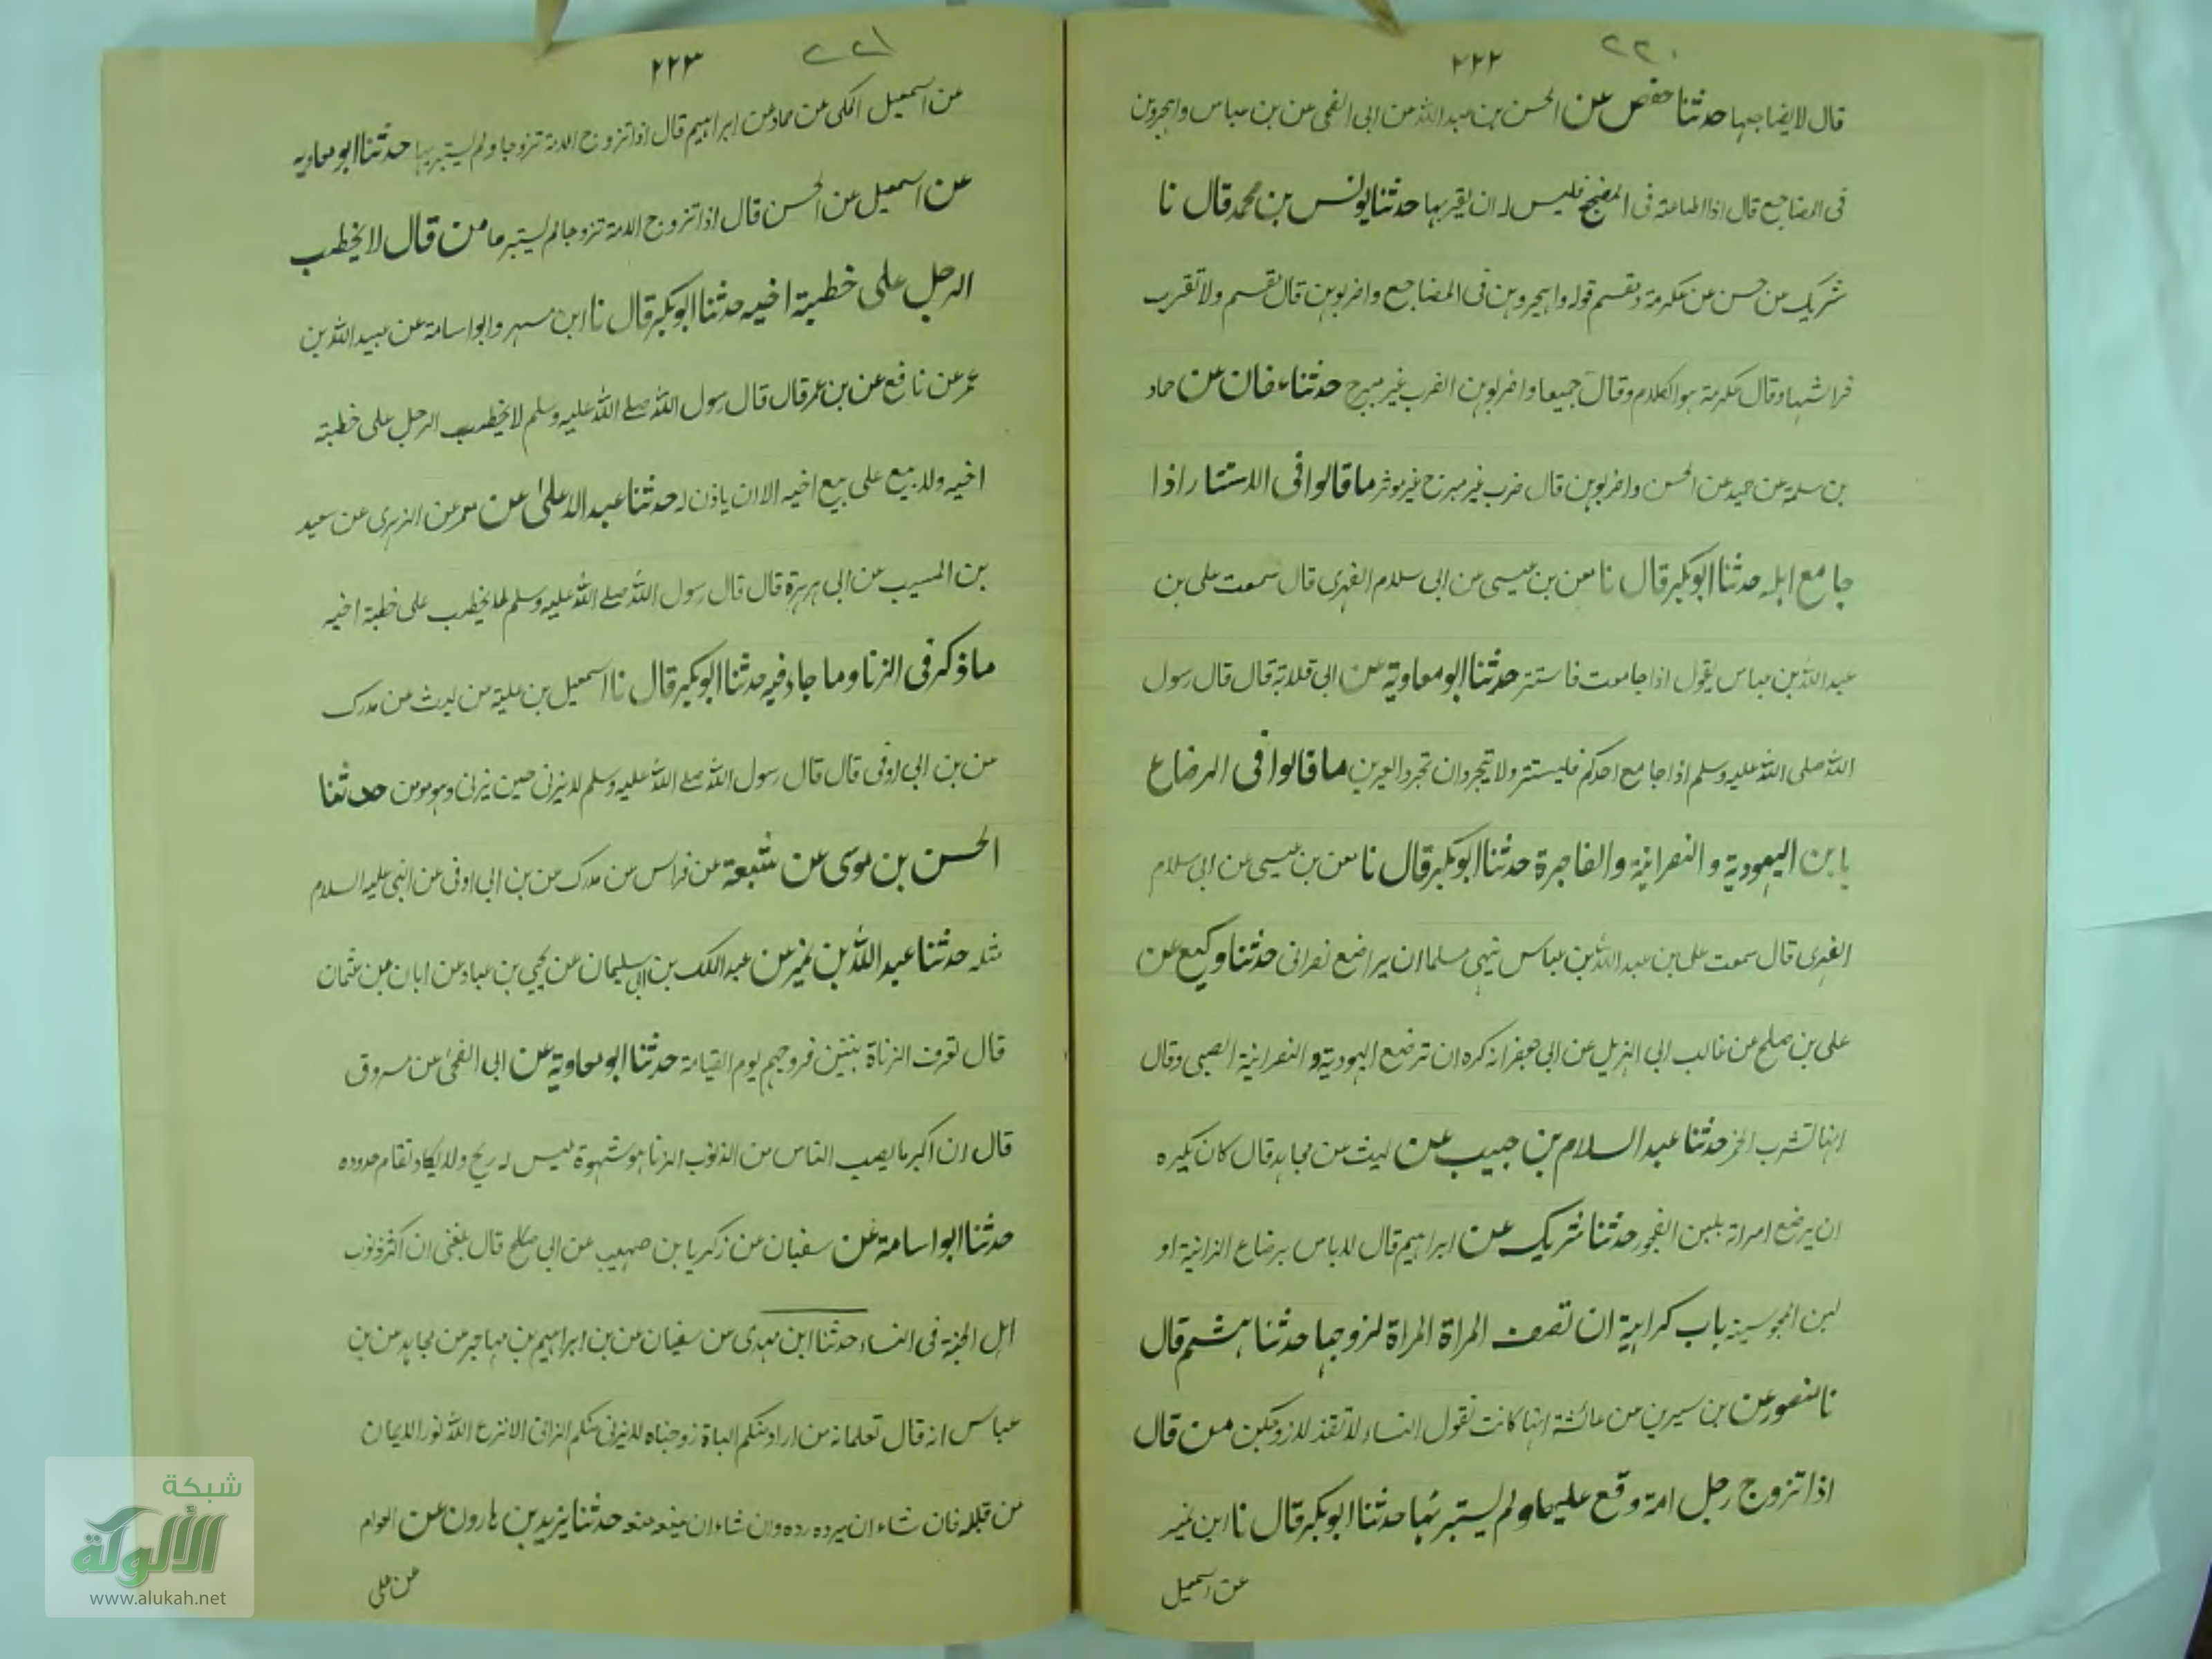 ٢٢٠
٢٢٢
قال لا يضاجعها حدثنا حفص عن الحسن بن عبد الله عن ابى الضحى عن بن عباس واهجروهن
فى المضاجع قال اذا اطاعته فى المضجع فليس له ان يقربها حدثنا يونس بن محمد قال نا
شريك عن حسن عن عكرمة ومقسم قوله واهجروهن فى المضاجع واضربوهن قال مقسم ولا تقرب
فراشها وقال عكرمة هو الكلام وقالا جميعا واضربوهن الضرب غير مبرح حدثنا عفان عن حماد
بن سلمة عن حميد عن الحسن واضربوهن قال ضرب غير مبرح غير موثر ما قالوا فى الاستتار اذا
جامع اهله حدثنا ابو بكر قال نا معن بن عيسى عن ابى سلام الفهرى قال سمعت على بن
عبد الله بن عباس يقول اذا جامعت فاستتر حدثنا ابو معاوية عن ابى قلابة قال قال رسول
الله صلى الله عليه وسلم اذا جامع احدكم فليستتر ولا يتجردان تجرد العيرين ما قالوا فى الرضاع
يا بن اليهودية والنصرانية والفاجرة حدثنا ابو بكر قال نا معن بن عيسى عن ابى سلام
الفهرى قال سمعت على بن عبد الله بن عباس ينهى مسلما ان يراضع نصرانى حدثنا وكيع عن
على بن صلح عن غالب ابى الهزيل عن ابى جعفر انه كره ان ترضع اليهودية والنصرانية الصبى وقال
انها تشرب الخمر حدثنا عبد السلام بن حبيب عن ليث عن مجاهد قال كان يكره
ان يرضع امراة بلبن الفجور حدثنا شريك عن ابراهيم قال لا باس برضاع الزانية او
لبن المجوسية باب كراهية ان تصف المراة المراة لزوجها حدثنا هشم قال
نا منصور عن بن سيرين عن عائشة انها كانت تقول النساء لا تقذ لازوجكن من قال
اذا تزوج رجل امة وقع عليها ولم يستبرئها حدثنا ابو بكر قال نا ابن نمير
عن اسمعيل
٢٢١
٢٢٣
عن اسمعيل المكى عن حماد عن ابراهيم قال اذا تزوج الامة تزوجا ولم يستبريها حدثنا ابو معاويه
عن اسمعيل عن الحسن قال اذا تزوج الامة تزوجا لم يستبرها من قال لا يخطب
الرجل على خطبة اخيه حدثنا ابو بكر قال نا ابن مسهر وابو اسامة عن عبيد الله بن
عمر عن نافع عن بن عمر قال قال رسول الله صلے الله عليه وسلم لا يخطب الرجل على خطبته
اخيه ولا يبيع على بيع اخيه الا ان ياذن له حدثنا عبد الاعلىٰ عن معمر عن الزهرى عن سعيد
بن المسيب عن ابى هريرة قال قال رسول الله صلے الله عليه وسلم لا يخطب على خطبة اخيه
ما ذكر فى الزنا وما جاء فيه حدثنا ابو بكر قال نا اسمعيل بن علية عن ليث عن مدرك
عن بن ابى اوفى قال قال رسول الله صلے الله عليه وسلم لا يزنى حين يزنى وهو مومن حدثنا
الحسن بن موسى عن شعبة عن فراس عن مدرك عن بن ابى اوفى عن النبى عليه السلام
مثله حدثنا عبد الله بن نمير عن عبد الملك بن ابى سليمان عن يحيى بن عباد عن ابان عن عثمان
قال تعرف الزناة بنتن فروجهم يوم القيامة حدثنا ابو معاوية عن ابى الضحى عن مسروق
قال ان اكبر ما يصيب الناس من الذنوب الزنا هو شهوة ليس له ريح ولا يكاد تقام حدوده
حدثنا ابو اسامة عن سفيان عن زكريا بن صهيب عن ابى صلح قال بلغنى ان اكثر ذنوب
اهل الجنة فى النساء حدثنا ابن مهدى عن سفيان عن بن ابراهيم بن مهاجر عن مجاهد عن بن
عباس انه قال تعلمانه من اراد منكم الباة زوجناه لا يزنى منكم الزانى الا نزع الله نور الايمان
من قبله فان شاء ان يرده رده وان شاء ان يمنعه منعه حدثنا يزيد بن هارون عن العوام
عن على
شبكة
الألوكة
www.alukah.net